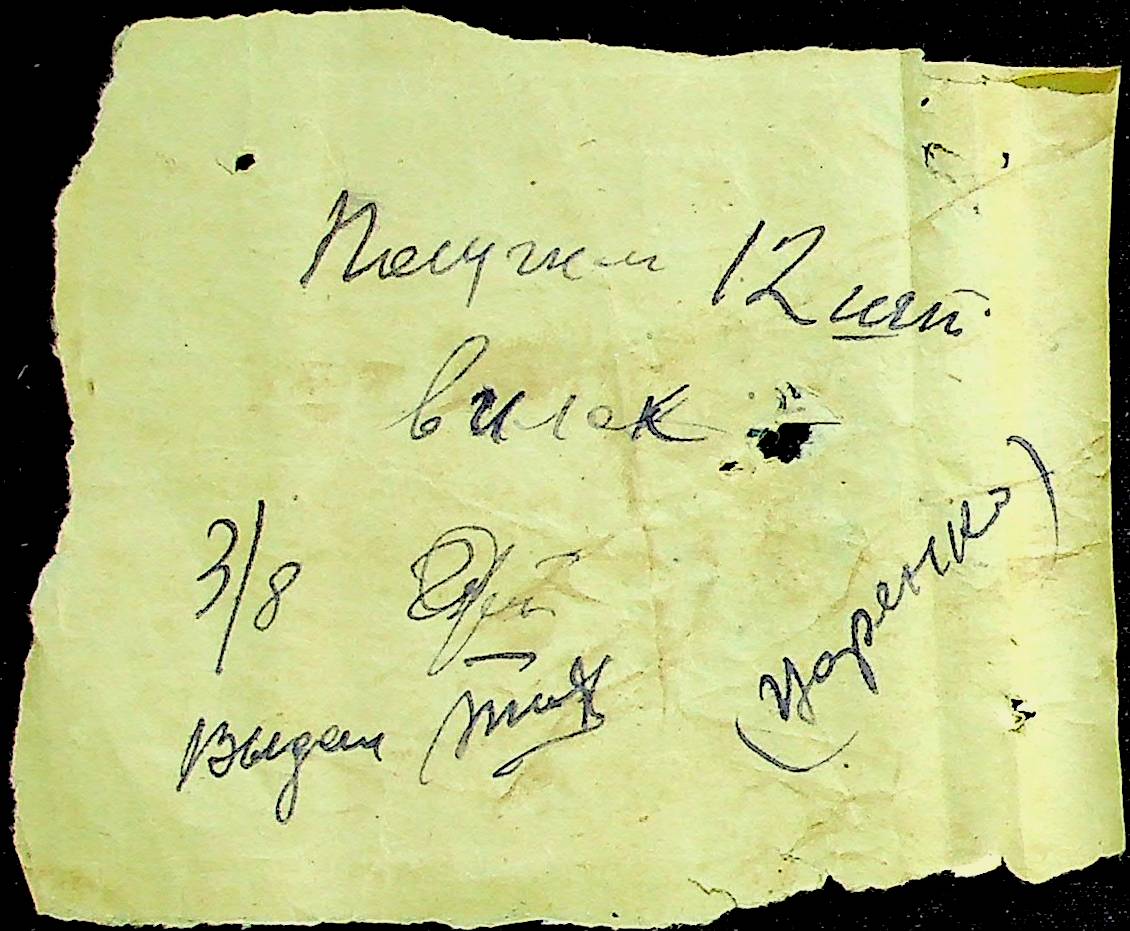 Получил 12 шт.
вилок
3/8
Выдал
(Царенко)